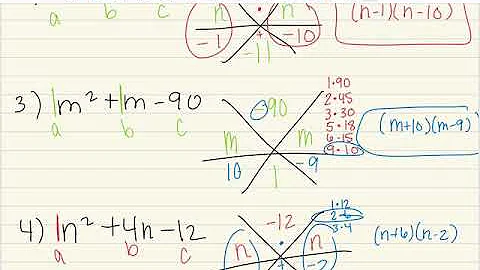 n · n (n-1)(n-10)
a b c -1 + -10
-11
3) 1m² + 1m - 90 -90
a b c m m
10 -9
1
1·90
2·45
3·30
5·18
6·15
9·10
(m+10)(m-9)
4) 1n² + 4n - 12 -12
a b c n · n
+ -2
1·12
2·6
3·4
(n+6)(n-2)